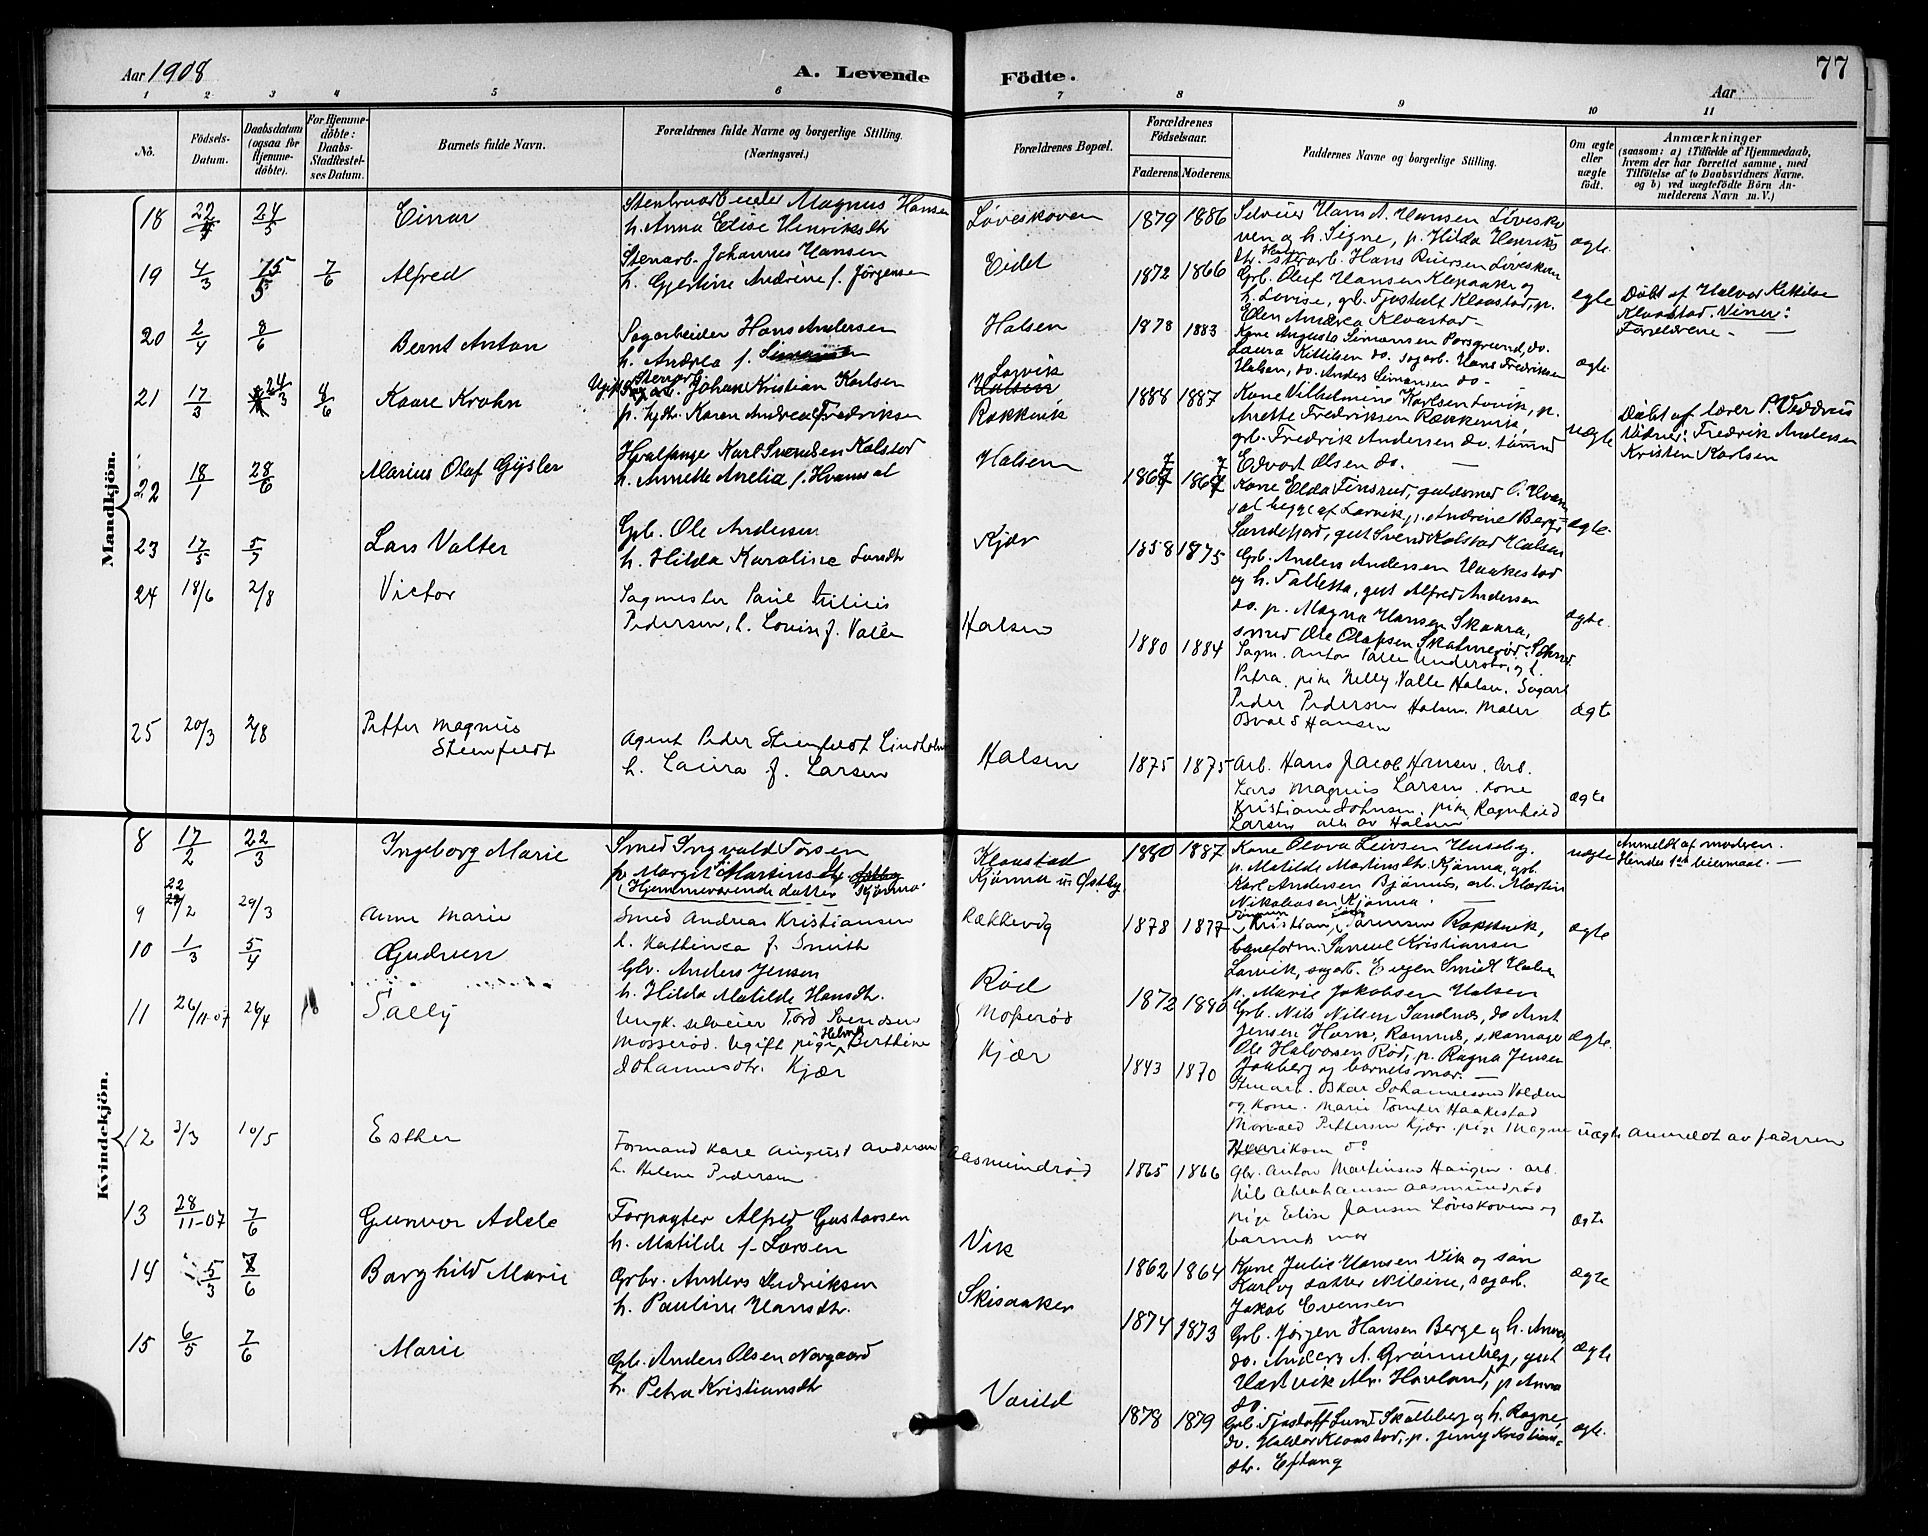 Aar 1908
A. Levende
Födte.
77
Aar
1 2 3 4 5 6 7 8 9 10 11
No.
Födsels-Datum.
Daabsdatum (ogsaa for Hjemme-döbte).
For Hjemme-döbte: Daabs-Stadfæstel-ses Datum.
Barnets fulde Navn.
Forældrenes fulde Navne og borgerlige Stilling. (Næringsvei.)
Forældrenes Bopæl.
Forældrenes Födselsaar.
Faderens.
Moderens.
Faddernes Navne og borgerlige Stilling.
Om ægte eller uægte födt.
Anmærkninger
(saasom: a) i Tilfælde af Hjemmedaab, hvem der har forrettet samme, med Tilföielse af to Daabsvidners Navne. og b) ved uægtefödte Börn An-melderens Navn m. V.)
Mandkjön.
18 24/5 Einar
Magnus Hansen
h. Anna Elise Henriksdtr
Løveskoven 1879 1886
Selveier Hans A. Hansen Løvesko
ven og h. Signe, p. Hilda Henriks
ægte
19 4/3 15/3 7/6 Alfred
Stenarb. Johannes Hansen
h. Gjertine Andrine f. Jörgensen
Eidet 1872 1866
Grb. Oluf Hansen Klepaaker og
h. Lovise, gb. Tjostulf Klaastad, p.
Elen Andrea Klaastad
ægte
Döbt af Halvor Kittilsen
Klaastad. Viner:
Forældrene
20 2/4 8/6 Bernt Anton
Sagarbeider Hans Andersen
h. Andrea f. Simonsen
Halsen 1878 1883
Kone Augusta Simonsen Porsgrund, do.
Laura Kittilsen do. sagarb. Hans Fredriksen
Halsen, do. Anders Simonsen do
ægte
21 17/3 24/3 4/6 Kaare Krohn
Ugift Stenarb. Johan Kristian Karlsen
p. Karen Andrea Fredriksen
Larvik
Halsen
Rekkevik 1888 1887
Kone Vilhelmine Karlsen Larvik, p.
Anette Fredriksen Rækkevik,
grb. Fredrik Andersen do. tömmd
Edvart Olsen do.
uægte
Döbt af lærer P.
Vidner: Fredrik Andersen
Kristen Karlsen
22 18/1 28/6 Marius Olaf Gjysler
Hvalfanger Karl Svendsen Kolstad
h. Annette Amelia f. Hvamsal
Halsen 1867 1867
Kone Elda Finsrud, guldsmed O. Hvam
sal begge af Larvik, p. Andrine Berg
Sandefjord, gut Svend Kolstad Halsen
ægte
23 17/5 5/7 Lars Valter
Gbr. Ole Andersen
h. Hilda Karoline Larsdtr
Kjær 1858 1875
Grb. Anders Andersen Haakestad
og h. Tallette, gut Alfred Andersen
do. p. Magna Hansen Skaara,
smed Ole Olafsen
ægte
24 18/6 2/8 Victor
Sagmester Paul Julius
Pedersen, h. Louise f. Valle
Halsen 1880 1884
Sagm. Anton Valle Understøi, og h.
Petra, pike Nelly Valle Halsen. Sagarb
Peder Pedersen Halsen. Maler
Osvald Hansen
ægte
25 20/3 2/8 Petter Magnus
Steenfeldt
Agent Peder Steenfeldt Lindholm
h. Laura f. Larsen
Halsen 1875 1875
Arb. Hans Jacob Hansen. Arb.
Lars Magnus Larsen. Kone
Kristiane Johnsen. pike Ragnhild
Larsen alle av Halsen
ægte
Kvindekjön.
8 17/2 22/3 Ingeborg Marie
Smed Ingvald Torsen
p. Margit Martinsdtr Østby
(Hjemmeværende datter Kjønna
Klaastad
Kjønna u. Østby 1880 1887
Kone Olava Leivsen Huseby,
p. Matilde Martinsdtr. Kjønna, grb.
Karl Andersen Bjønnes, arb. Martin
Nikolaisen Kjønna
uægte
Anmeldt af moderen.
Hendes 1ste leiermaal.
9 22/2 29/3 Anne Marie
Smed Andreas Kristiansen
h. Kathinca f. Smith
Rækkevig 1878 1877
Kristian Rækkevik,
baneform. Samuel Kristiansen
Larvik, sagarb. Eugen Smidt Halsen
p. Marie Jakobsen Halsen
ægte
10 1/3 5/4 Gudrun
Gbr. Anders Jensen
h. Hilda Matilde Hansdtr.
Röd 1872 1880
Grb. Nils Nilsen Sandnæs, do Arnt
Jensen Hem, Ramnæs, skomager
Ole Halvorsen Röd, p. Ragna Jensen
Jakberg og barnets mor.
ægte
11 26/11-07 26/4 Sally
Ungk. selveier Tord Svendsen
Mosserød. Ugift pige Helma Berthine
Johannesdtr. Kjær
Mosserød
Kjær 1843 1870
Stenarb. Oskar Johannessen Volden
og Kone. Marie Tomter Haakestad
Pettersen Kjær. pige Magne
Henriksen do
uægte anmeldt av faderen
12 3/3 10/5 Esther
Formand Karl August Andersen
h. Helene Pedersen
Aasmundrød 1865 1866
Gbr. Anton Martinsen Haugen. arb.
Nils Abrahamsen Aasmundrød
pige Elise Jansen Løveskoven og
barnets mor
ægte
13 28/11-07 7/6 Gunvor Adele
Forpagter Alfred Gustavsen
h. Matilde f. Larsen
Vik 1862 1864
Kone Julie Hansen Vik og søn
Karl og datter Nilsine, sagarb.
Jakob Evensen
ægte
14 5/3 7/6 Borghild Marie
Grbr. Anders Fredriksen
h. Pauline Hansdtr.
Skisaaker 1874 1873
Grb. Jørgen Hansen Berge og h. Anna,
do. Anders A. Grønneberg, gut
Havland, p Anna
do.
ægte
15 6/5 7/6 Marie
Gb. Anders Olsen Norgaard
h. Petra Kristiansdtr
Varild 1878 1879
Grb. Tjostolf Lund Skalleberg og h. Ragne,
do. Haldor Klaastad, p. Jenny Kristians=
dtr. Eftang
ægte.